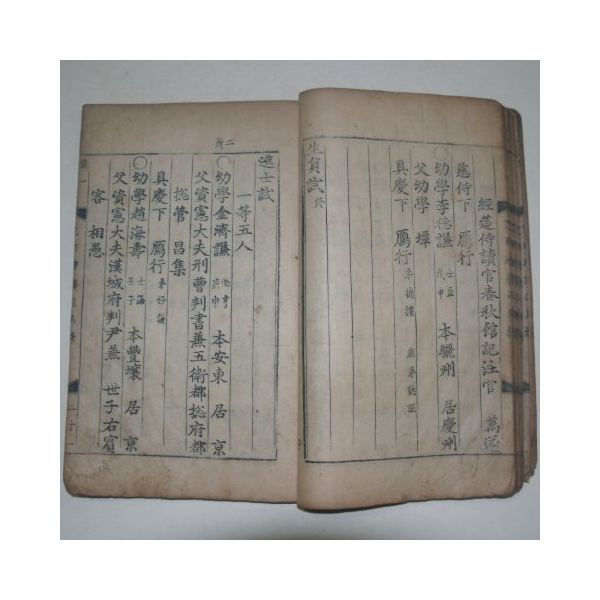 經筵侍讀官春秋館記注官 萬選
慈侍下 鴈行
幼學李德謙 士亞 戊申 本驪州 居慶州
父幼學 墇
具慶下 鴈行
生員試 終
二所
進士試
一等五人
幼學金濟謙 必亨 庚申 本安東 居京
父資憲大夫刑曹判書兼五衛都摠府都
摠管 昌集
具慶下 鴈行 弟好謙
幼學趙海壽 士 壬子 本豊壤 居京
父資憲大夫漢城府判尹兼 世子右賓
客 相愚